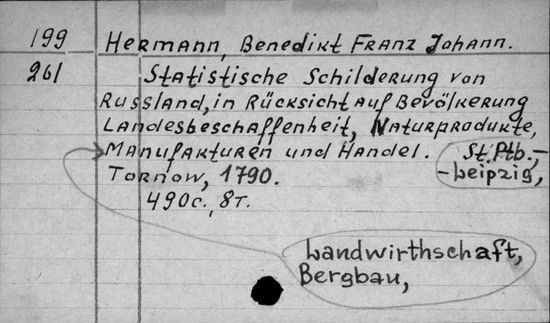 199 Hermann, Benedikt Franz Johann.
261 Statistische Schilderung von
Russland, in Rücksicht auf Bevölkerung
Landesbeschaffenheit, Naturprodukte,
Manufakturen und Handel. St. Ptb.,-
Tornow, 1790. -Leipzig,
490c., 8т.
Landwirthschaft,
Bergbau,